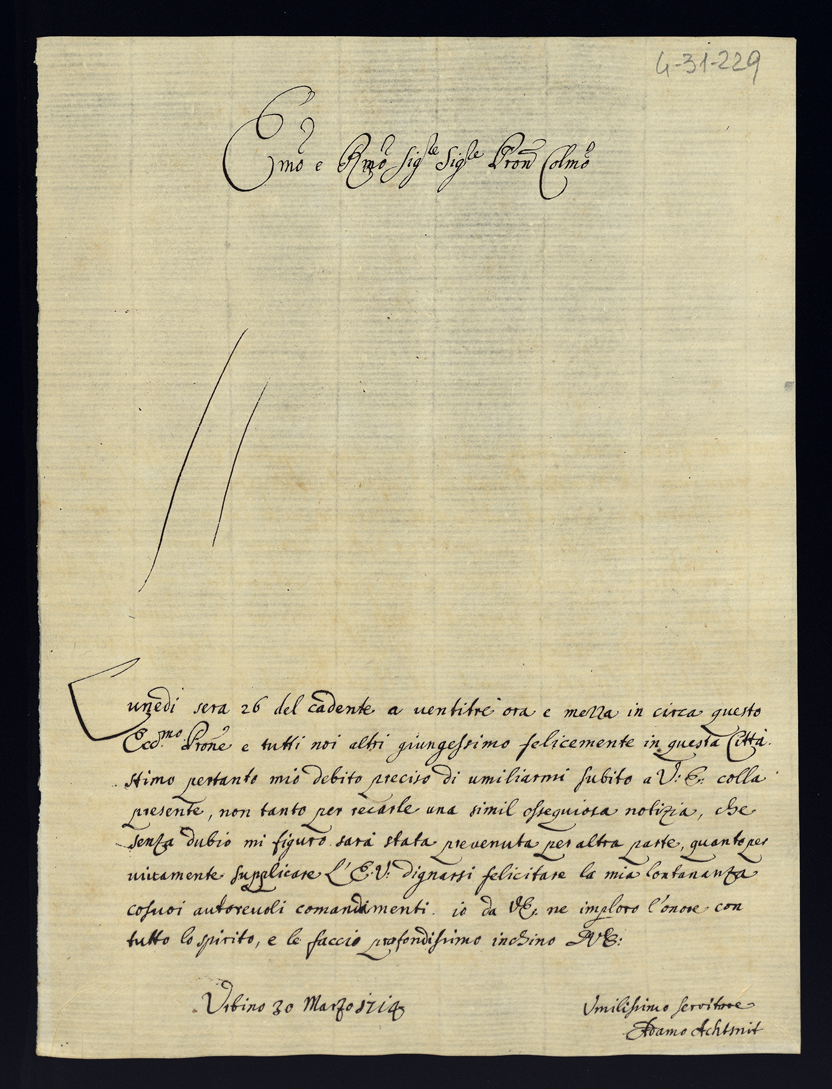 4-31-229
Emo e Rmo Sigre Sigre Pron Colmo
Lunedi sera 26 del cadente a ventitrè ora e mezza in circa questo
Ecc.mo Prone e tutti noi altri giungessimo felicemente in questa Città.
stimo pertanto mio debito preciso di umiliarmi subito a V: E: colla
presente, non tanto per recarle una simil ossequiosa notizia, che
senza dubio mi figuro sarà stata prevenuta per altra parte, quanto per
vivamente supplicare L'E:V: dignarsi felicitare la mia lontananza
cosuoi autorevoli comandamenti. io da VE. ne imploro l'onore con
tutto lo spirito, e le faccio profondissimo inchino DVE:
Urbino 30 Marzo 1714
Umilissimo servitore
Adamo Achtsnit